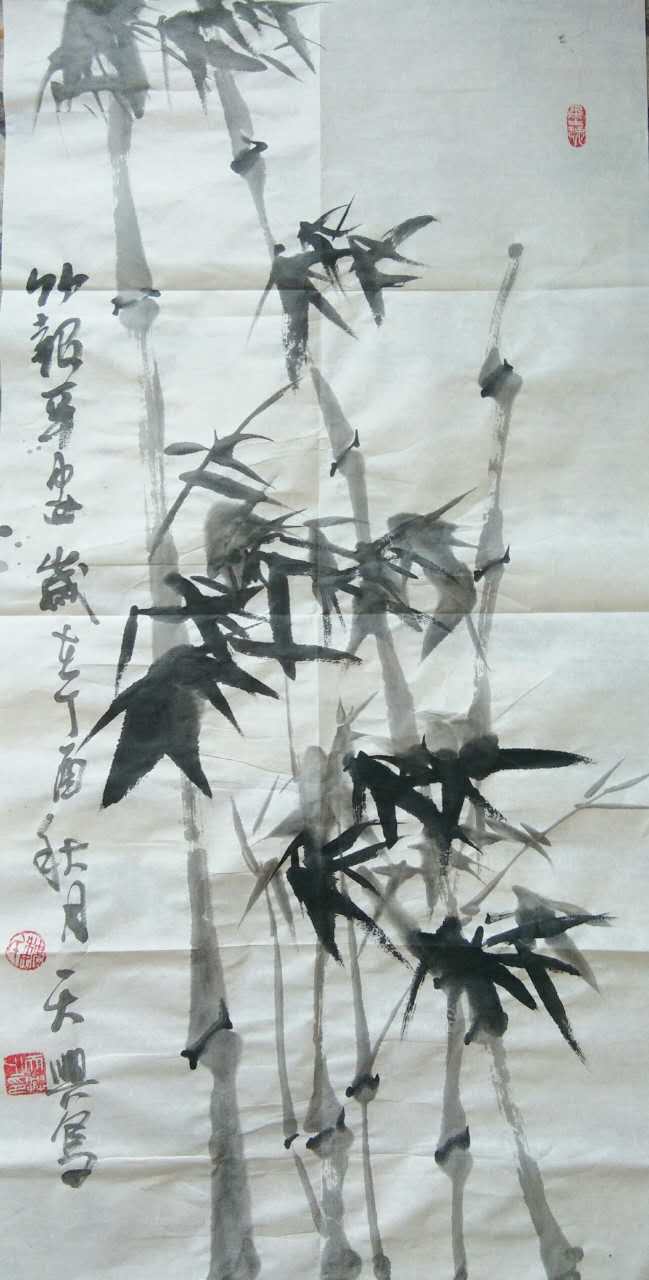 竹報平安 歲在丁酉秋月 天興寫